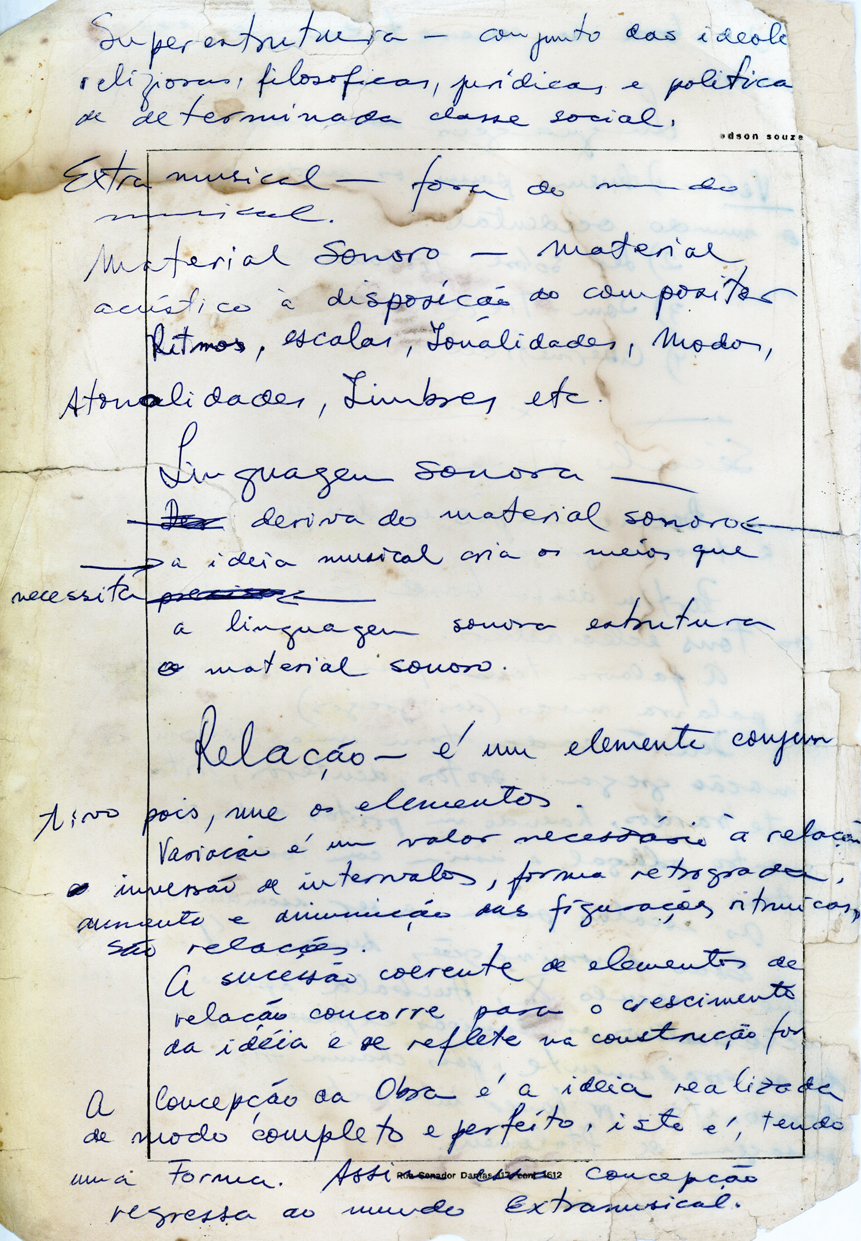 Superestrutura — conjunto das ideolo
religiosas, filosoficas, jurídicas e politica
de determinada classe social.
edson souza
Extra musical — fora do mundo
musical.
Material Sonoro — Material
acústico à disposição do compositor
Ritmos, escalas, Tonalidades, Modos,
Atonalidades, Timbres etc.
Linguagem sonora —
deriva do material sonoro
a ideia musical cria os meios que
necessita
a linguagem sonora estrutura
o material sonoro.
Relação — é um elemento conjun
tivo pois, une os elementos.
Variação é um valor necessário à relação
inversão de intervalos, forma retrograda,
aumento e diminuição das figurações ritmicas,
são relações.
A sucessão coerente de elementos de
relação concorre para o crescimento
da idéia e se reflete na construção for
A Concepção da Obra é a ideia realizada
de modo completo e perfeito, isto é, tendo
uma Forma. Assim concepção
Rua Senador Dantas, 117 conj. 1612
regressa ao mundo Extramusical.